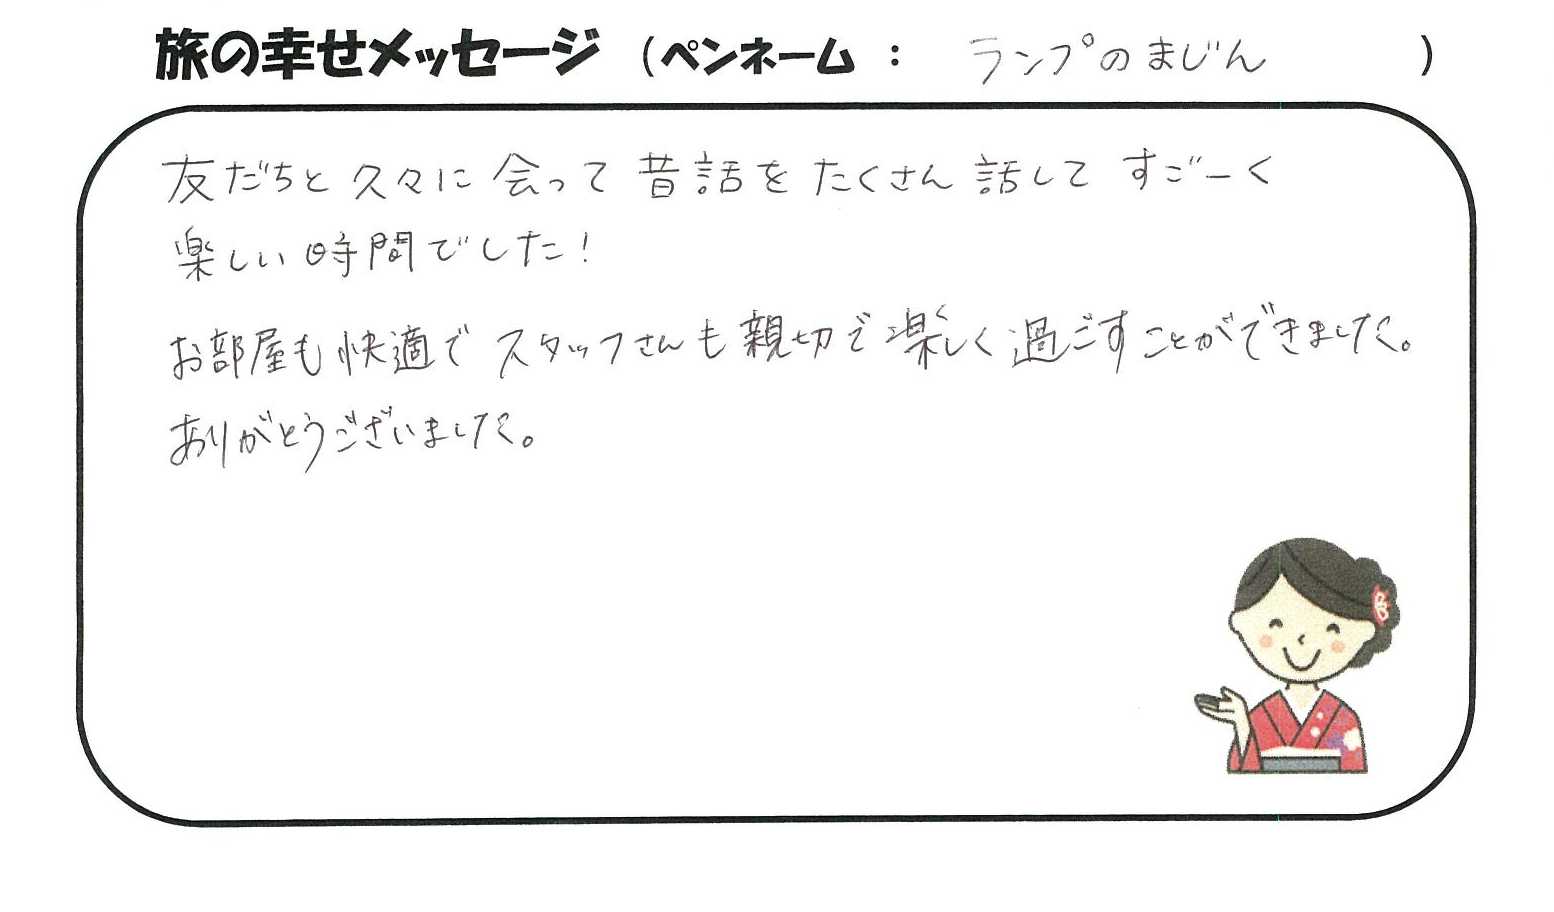 旅の幸せメッセージ（ペンネーム： ランプのまじん ）
友だちと久々に会って昔話をたくさん話してすごーく
楽しい時間でした！
お部屋も快適でスタッフさんも親切で楽しく過ごすことができました。
ありがとうございました。